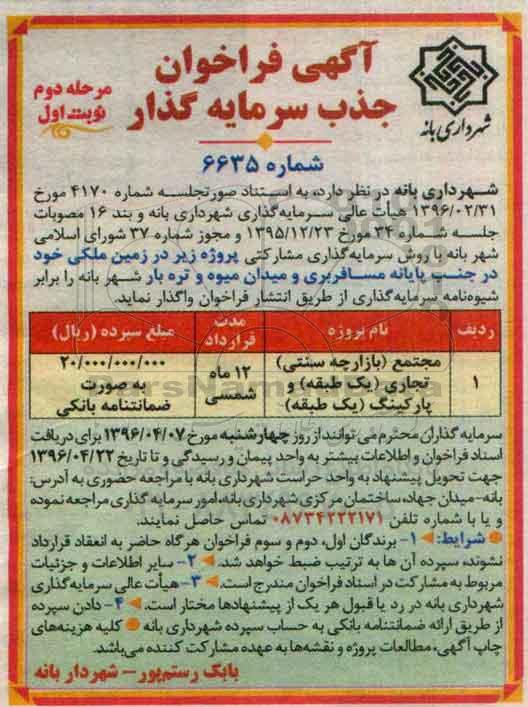 آگهی فراخوان
جذب سرمایه گذار
مرحله دوم
نوبت اول
شهرداری بانه
شماره ۶۶۳۵
شهرداری بانه در نظر دارد، به استناد صورتجلسه شماره ۴۱۷۰ مورخ
۱۳۹۶/۰۲/۳۱ هیأت عالی سرمایه‌گذاری شهرداری بانه و بند ۱۶ مصوبات
جلسه شماره ۳۴ مورخ ۱۳۹۵/۱۲/۲۳ و مجوز شماره ۳۷ شورای اسلامی
شهر بانه با روش سرمایه‌گذاری مشارکتی پروژه زیر در زمین ملکی خود
در جنب پایانه مسافربری و میدان میوه و تره بار شهر بانه را برابر
شیوه‌نامه سرمایه‌گذاری از طریق انتشار فراخوان واگذار نماید.
ردیف نام پروژه مدت قرارداد مبلغ سپرده (ریال)
۱ مجتمع (بازارچه سنتی) تجاری (یک طبقه) و پارکینگ (یک طبقه) ۱۲ ماه شمسی ۲۰/۰۰۰/۰۰۰/۰۰۰ به صورت ضمانتنامه بانکی
سرمایه گذاران محترم می توانند از روز چهارشنبه مورخ ۱۳۹۶/۰۴/۰۷ برای دریافت
اسناد فراخوان و اطلاعات بیشتر به واحد پیمان و رسیدگی و تا تاریخ ۱۳۹۶/۰۴/۲۲
جهت تحویل پیشنهاد به واحد حراست شهرداری بانه با مراجعه حضوری به آدرس:
بانه-میدان جهاد، ساختمان مرکزی شهرداری بانه، امور سرمایه گذاری مراجعه نموده
و یا با شماره تلفن ۰۸۷۳۴۲۲۲۱۷۱ تماس حاصل نمایند.
شرایط: ۱- برندگان اول، دوم و سوم فراخوان هرگاه حاضر به انعقاد قرارداد
نشوند، سپرده آن ها به ترتیب ضبط خواهد شد. ۲- سایر اطلاعات و جزئیات
مربوط به مشارکت در اسناد فراخوان مندرج است. ۳- هیأت عالی سرمایه‌گذاری
شهرداری بانه در رد یا قبول هر یک از پیشنهادها مختار است. ۴- دادن سپرده
از طریق ارائه ضمانتنامه بانکی به حساب سپرده شهرداری بانه کلیه هزینه‌های
چاپ آگهی، مطالعات پروژه و نقشه‌ها به عهده مشارکت کننده می‌باشد.
بابک رستم‌پور - شهردار بانه